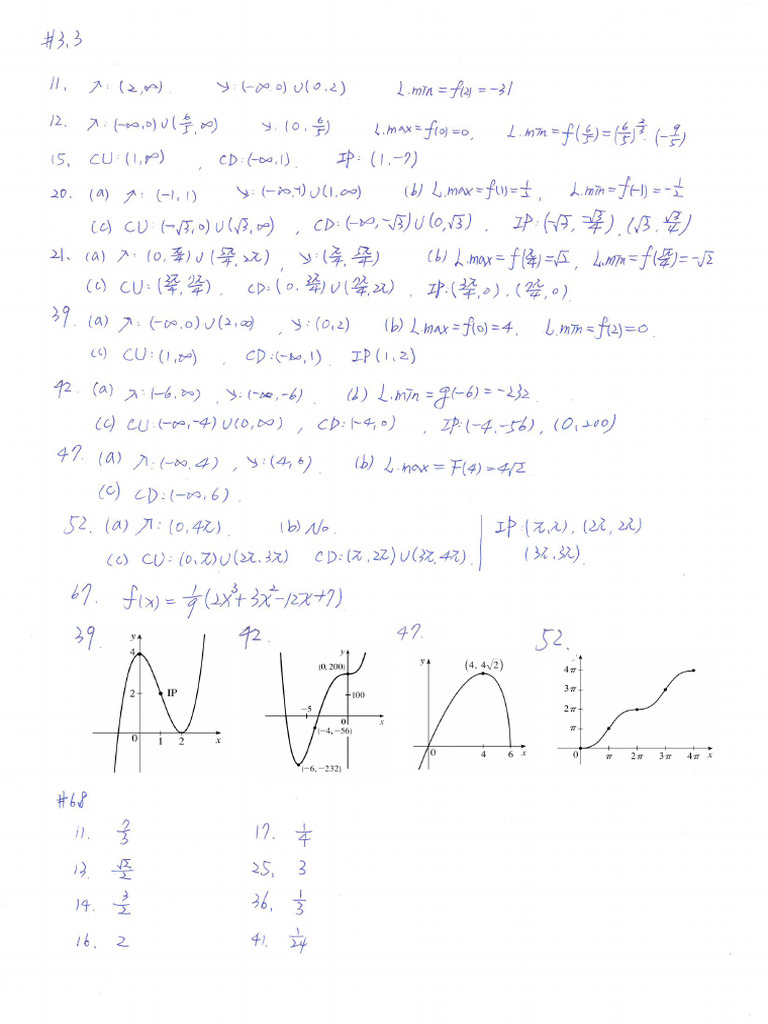 #3,3
11. ↗: (2,∞). ↘: (-∞,0)∪(0,2) L.min = f(2) = -31
12. ↗: (-∞,0)∪(6/5,∞) ↘: (0, 6/5) L.max = f(0) = 0, L.min = f(6/5) = (6/5)^(2/3)·(-9/5)
15. CU: (1,∞), CD: (-∞,1). IP: (1,-7)
20. (a) ↗: (-1,1) ↘: (-∞,-1)∪(1,∞) (b) L.max = f(1) = 1/2, L.min = f(-1) = -1/2
(c) CU: (-√3,0)∪(√3,∞), CD: (-∞,-√3)∪(0,√3). IP: (-√3, -√3/4), (√3, √3/4)
21. (a) ↗: (0, π/4)∪(5π/4, 2π), ↘: (π/4, 5π/4) (b) L.max = f(π/4) = √2, L.min = f(5π/4) = -√2
(c) CU: (3π/4, 7π/4). CD: (0, 3π/4)∪(7π/4, 2π), IP: (3π/4, 0), (7π/4, 0).
39. (a) ↗: (-∞,0)∪(2,∞), ↘: (0,2) (b) L.max = f(0) = 4, L.min = f(2) = 0.
(c) CU: (1,∞), CD: (-∞,1). IP (1,2)
42. (a) ↗: (-6,∞), ↘: (-∞,-6). (b) L.min = g(-6) = -232.
(c) CU: (-∞,-4)∪(0,∞), CD: (-4,0), IP: (-4,-56), (0,200)
47. (a) ↗: (-∞,4), ↘: (4,6). (b) L.max = F(4) = 4√2.
(c) CD: (-∞,6).
52. (a) ↗: (0,4π). (b) No. IP: (π,π), (2π,2π)
(c) CU: (0,π)∪(2π,3π) CD: (π,2π)∪(3π,4π). (3π,3π).
67. f(x) = 1/9 (2x³+3x²-12x+7)
39. 42. 47. 52.
y 4 2 IP 0 1 2 x
y (0, 200) 100 -5 0 x (-4, -56) (-6, -232)
y (4, 4√2) 0 4 6 x
4π 3π 2π π 0 π 2π 3π 4π x
#6.8
11. 2/3 17. 1/4
13. √2/2 25. 3
14. 3/2 36. 1/3
16. 2 41. 1/24